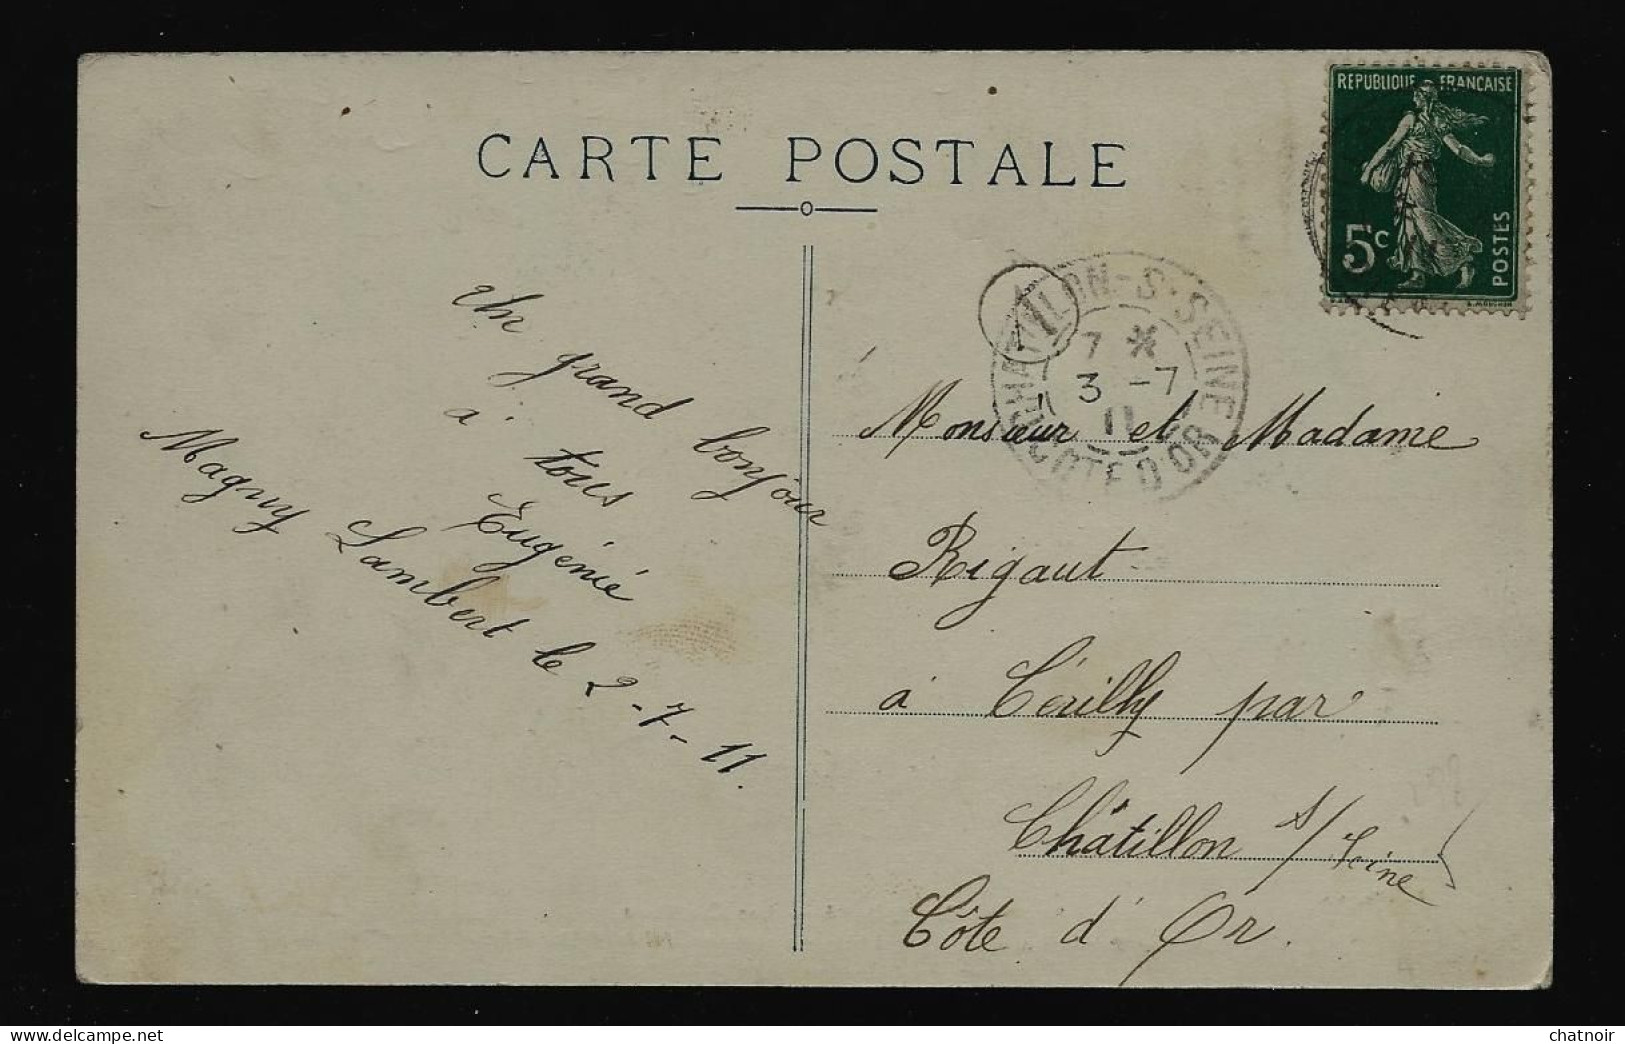 CARTE POSTALE
REPUBLIQUE FRANÇAISE
5c
POSTES
CHATILLON-S-SEINE
7 *
3 -7
11
COTE D'OR
Un grand bonjour
à tous
Eugénie
Magny Lambert le 2-7-11.
Monsieur et Madame
Rigaut
à Cérilly par
Châtillon s/Seine
Côte d'Or.
Posted for sale on www.delcampe.net
chatnoir